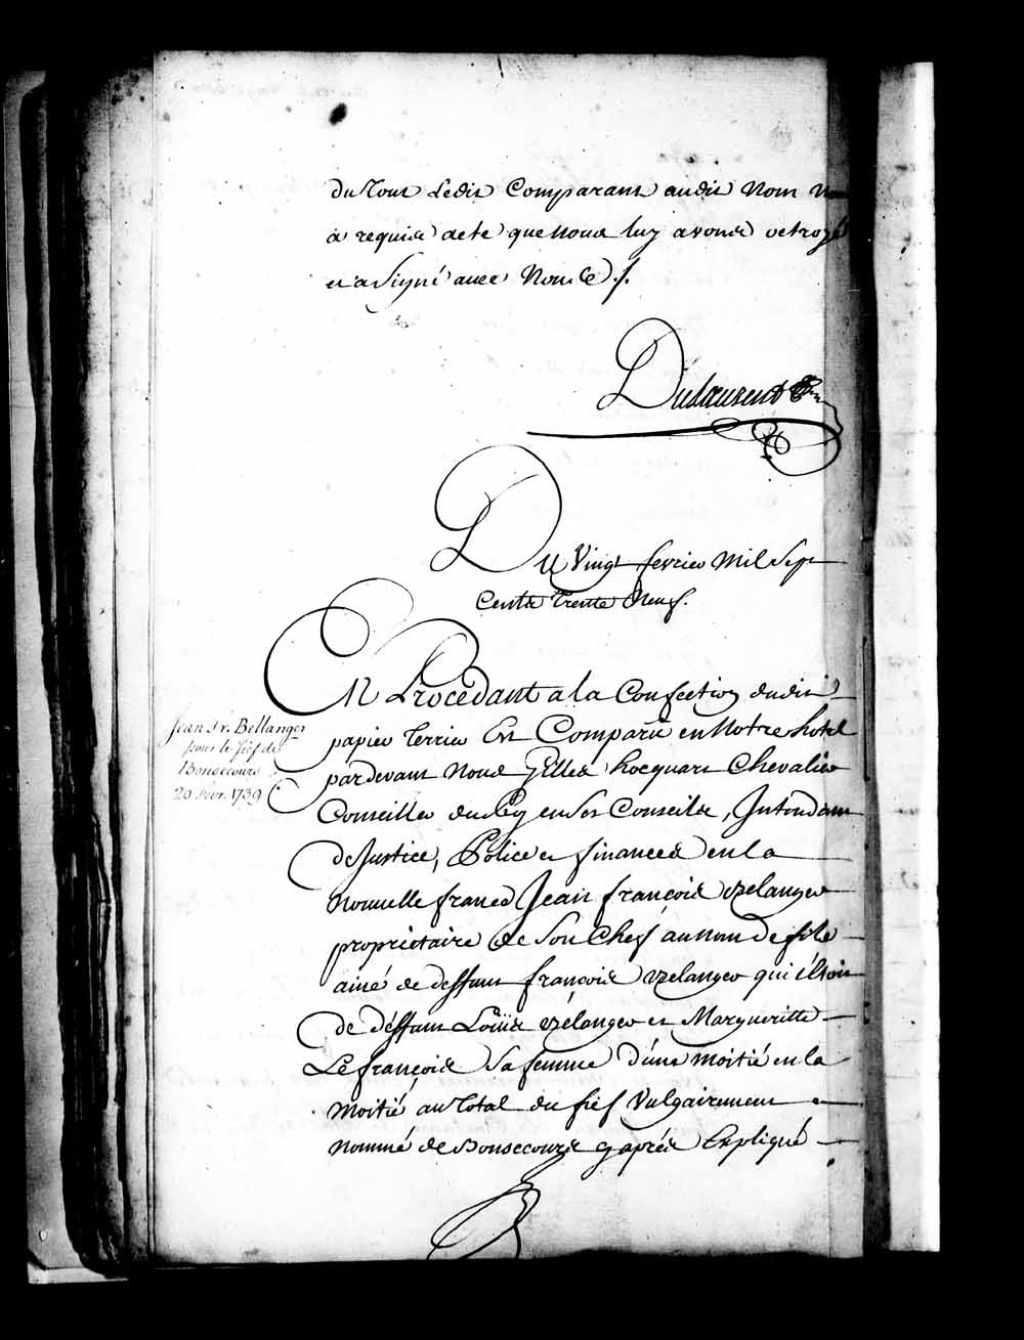 du Tout Ledit Comparant audit Nom N
a requis acte que nous luy avons octroyé
et a Signé avec Nous ce ./.
Dulaurent
Du Vingt fevrier Mil Sept
Cents Trente Neuf.
En Procedant a la Confection dudit
papier Terrier Est Comparu en Notre hotel
pardevant Nous Gilles hocquart Chevalier
Conseiller du Roy en ses Conseils, Intendant
de Justice, Police et finances en la
Nouvelle france Jean françois Belanger
proprietaire de Son Chef au nom de fils
ainé de deffunt françois Belanger qui étoit
de déffunt Loüis Bélanger et Margueritte
Le françois Sa femme d'une moitié en la
moitié au Total du fief Vulgairement
nommé de Bonsecours cy après Expliqué
Jean Fr. Bellanger
pour le fief de
Bonsecours
20 Févr. 1739